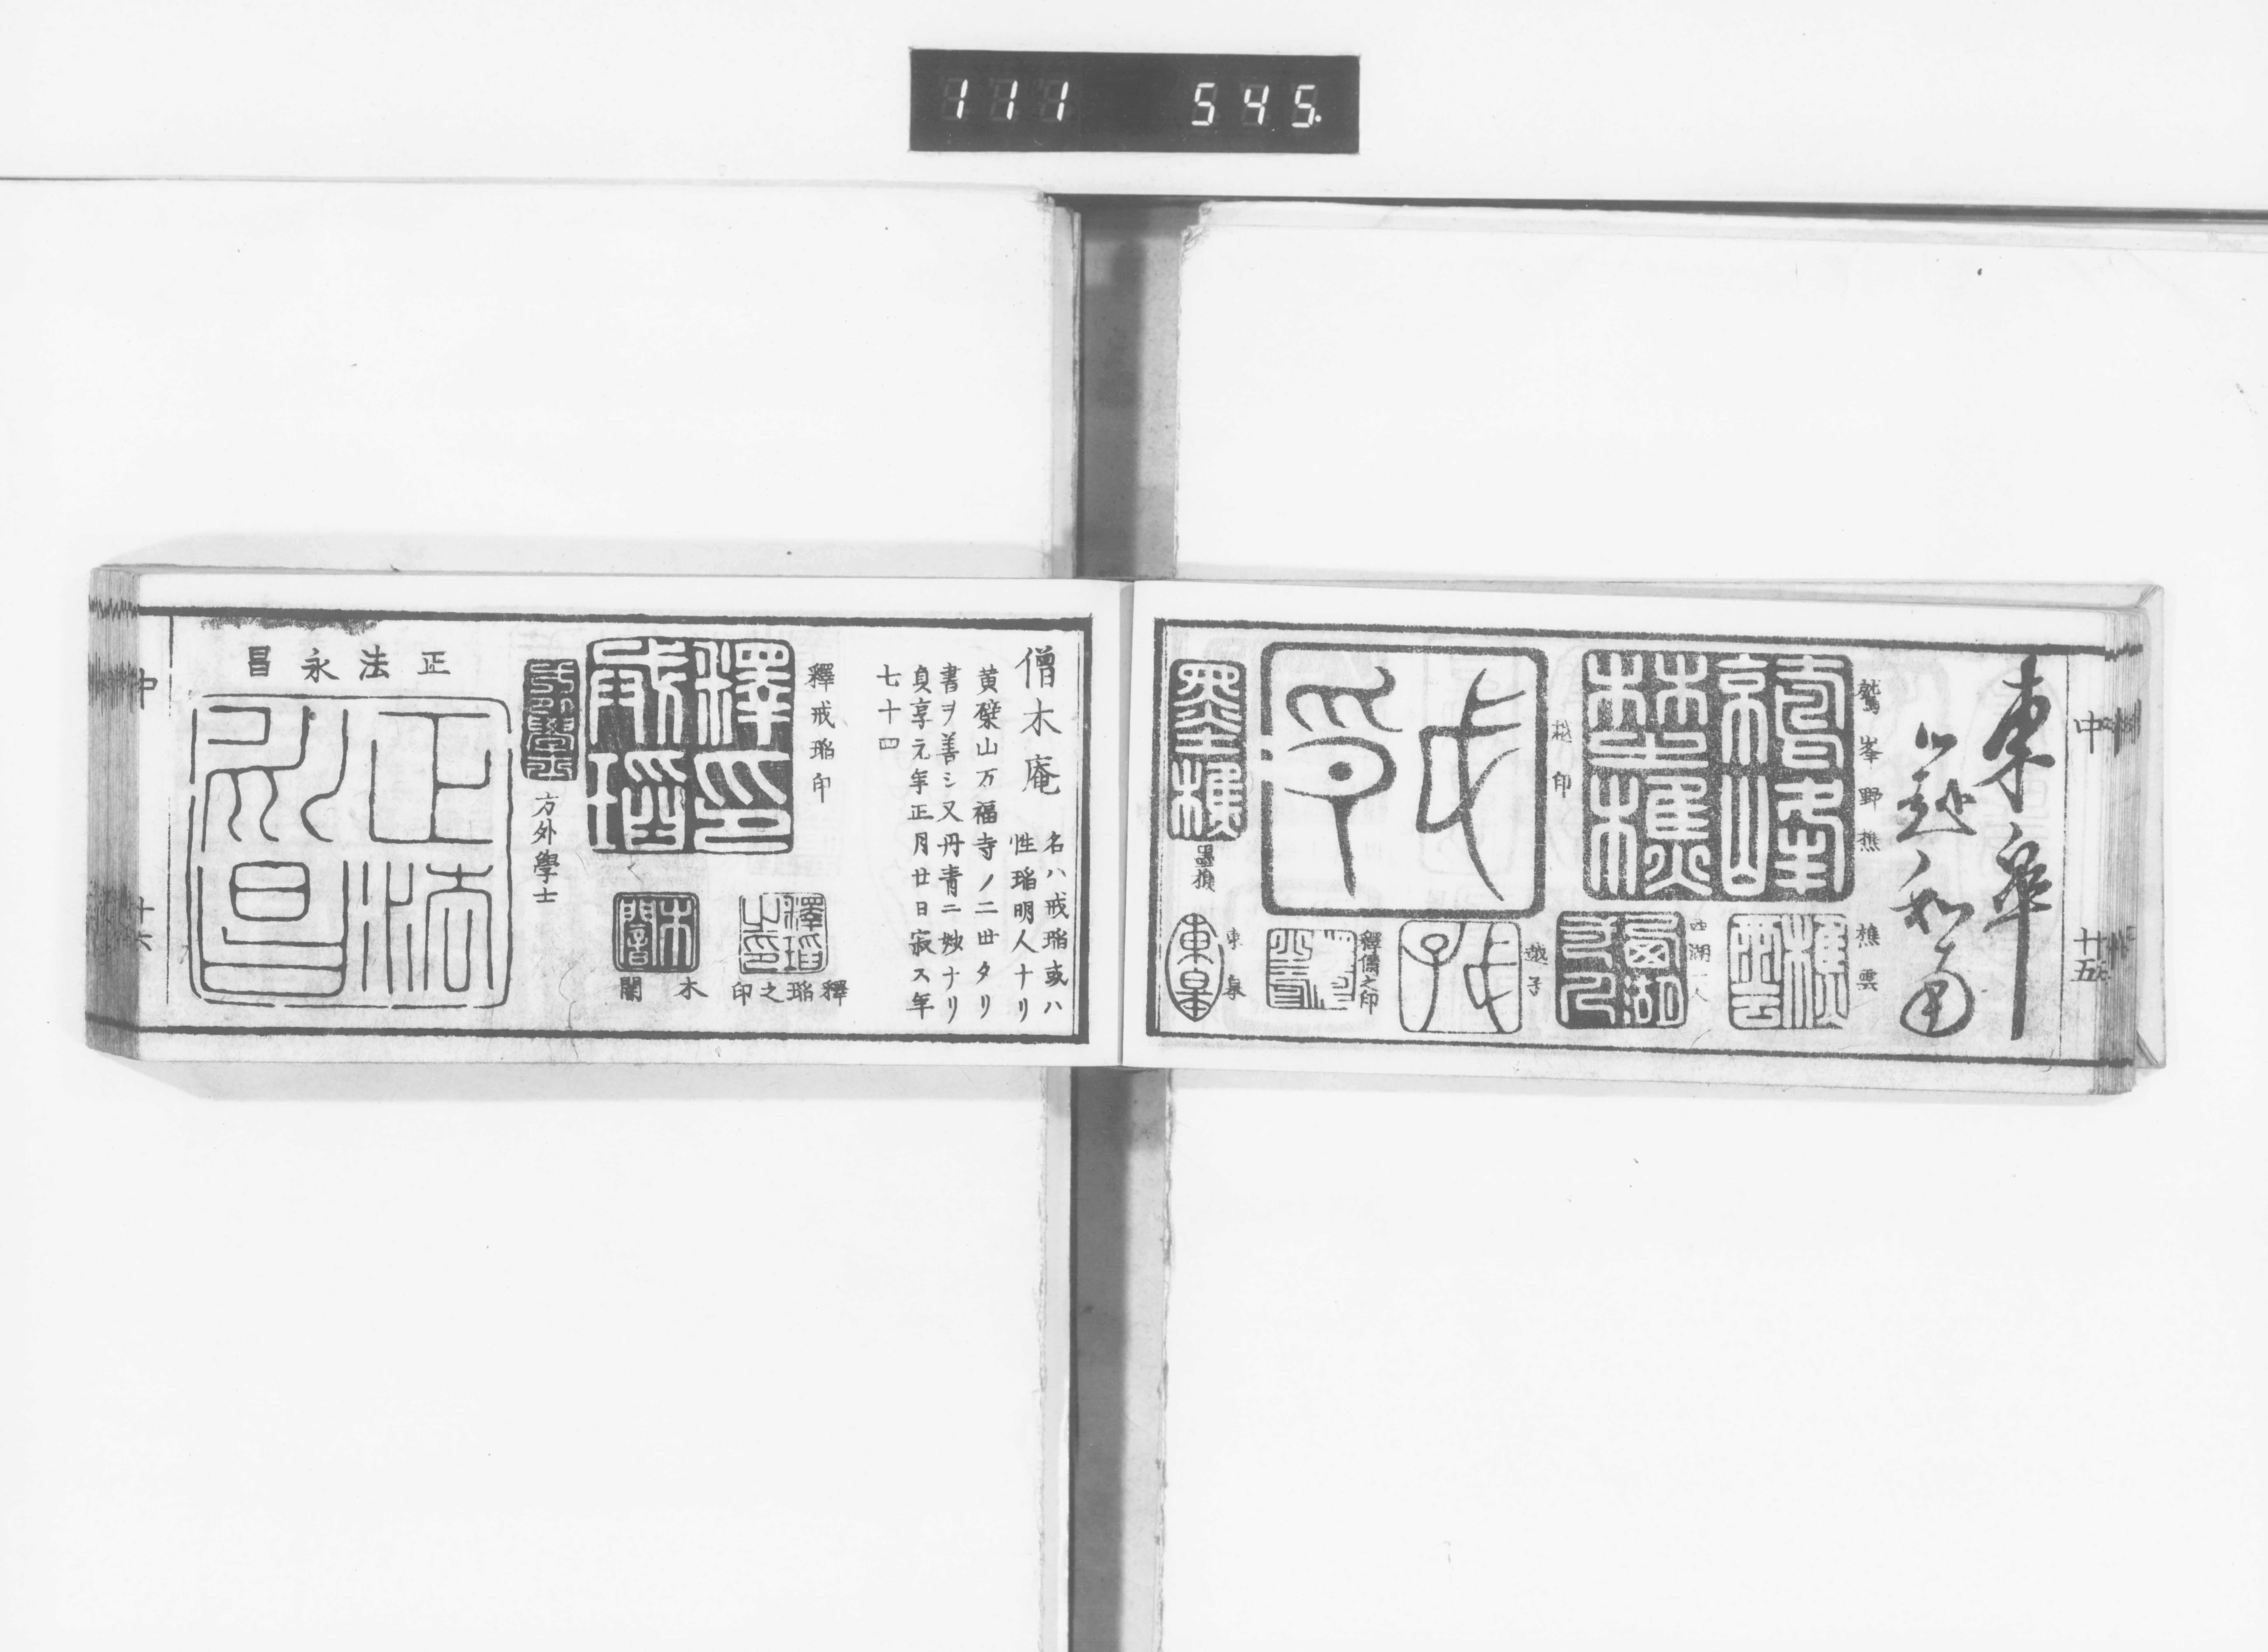 111 545.
中
廿五
東皐
心越
鷲峯野樵
樵雲
西湖一人
越印
越子
釋儔之印
墨樵
東皐
僧木庵
名ハ戒瑫或ハ
性瑫明人ナリ
黄檗山万福寺ノ二世タリ
書ヲ善シ又丹青ニ妙ナリ
貞享元年正月廿日寂ス年
七十四
釋戒瑫印
釋瑫之印
木
方外學士
正法永昌
中
十六